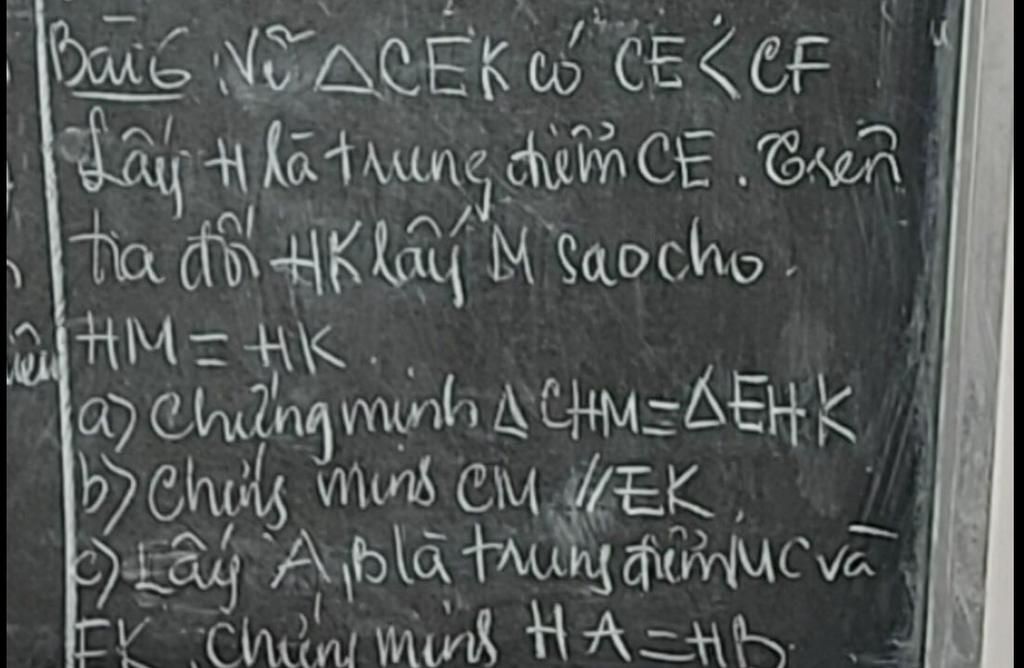 Bài 6: Vẽ △CEK có CE < CF
Lấy H là trung điểm CE. Trên
tia đối HK lấy M sao cho.
HM = HK.
a) Chứng minh △CHM = △EHK
b) Chứng minh CM // EK
c) Lấy A, B là trung điểm MC và
EK. Chứng minh HA = HB.